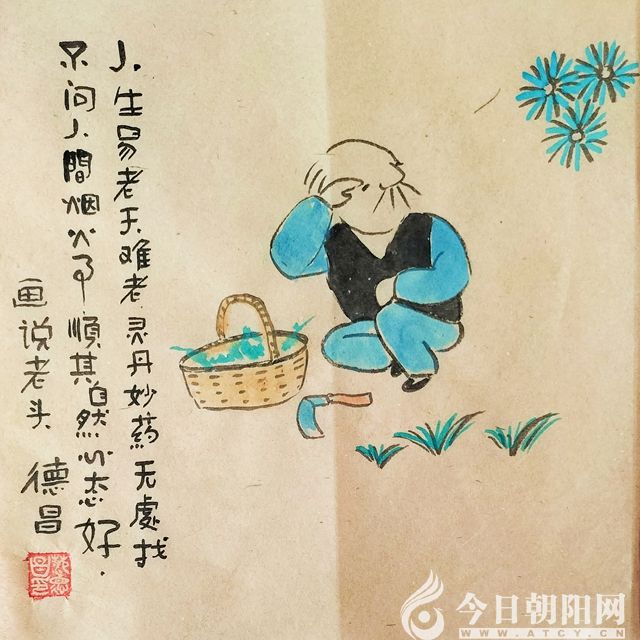 人生易老天难老灵丹妙藥无處找
不问人間烟火事順其自然心态好.
画说老头
德昌
今日朝阳网
WWW.ATCY.CN